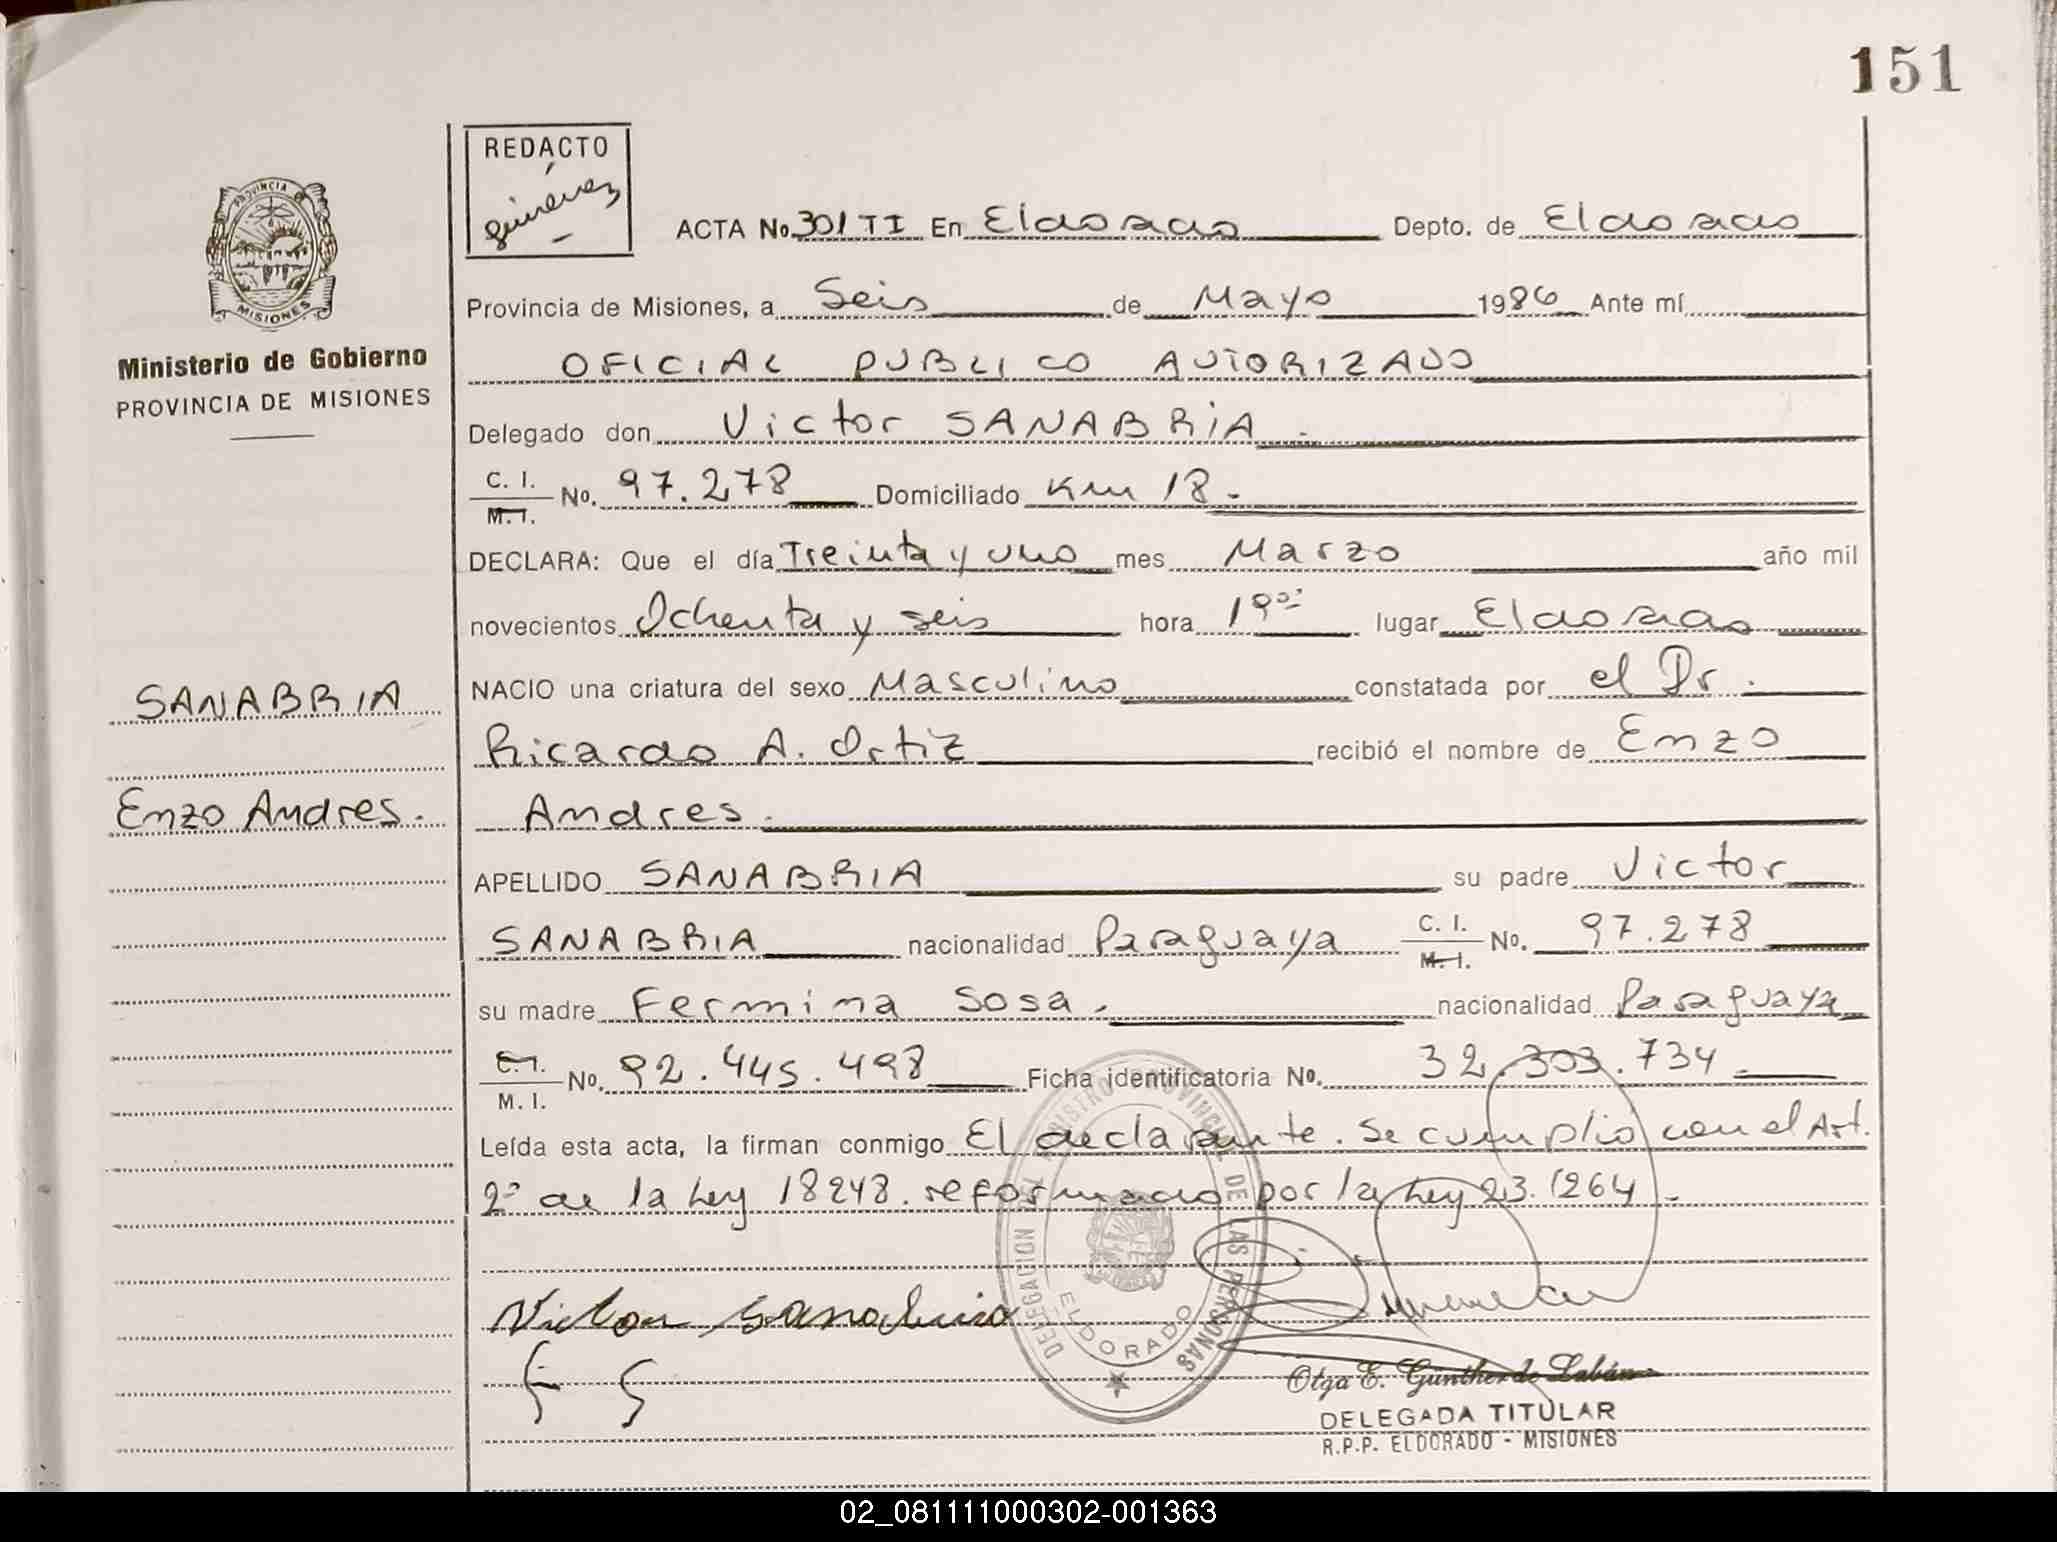 151
REDACTO
Giménez
PROVINCIA DE
MISIONES
Ministerio de Gobierno
PROVINCIA DE MISIONES
SANABRIA
Enzo Andres.
ACTA No. 301 TI En Eldorado Depto. de Eldorado
Provincia de Misiones, a Seis de Mayo 1986 Ante mí
OFICIAL PUBLICO AUTORIZADO
Delegado don Victor SANABRIA.
C. I. / M. I. No. 97.278 Domiciliado Km 18.
DECLARA: Que el día Treinta y uno mes Marzo año mil
novecientos Ochenta y seis hora 19⁰⁰ lugar Eldorado
NACIO una criatura del sexo Masculino constatada por el Dr.
Ricardo A. Ortiz recibió el nombre de Enzo
Andres.
APELLIDO SANABRIA su padre Victor
SANABRIA nacionalidad Paraguaya C. I. / M. I. No. 97.278
su madre Fermina Sosa. nacionalidad Paraguaya
C. I. / M. I. No. 92.445.498 Ficha identificatoria No. 32.303.734.
Leída esta acta, la firman conmigo El declarante. Se cumplió con el Art.
2º de la Ley 18248. reformado por la Ley 23.1264.
Victor Sanabria
DELEGACION DEL REGISTRO PROVINCIAL DE LAS PERSONAS
ELDORADO
Olga E. Günther de Labán
DELEGADA TITULAR
R.P.P. ELDORADO - MISIONES
02_081111000302-001363